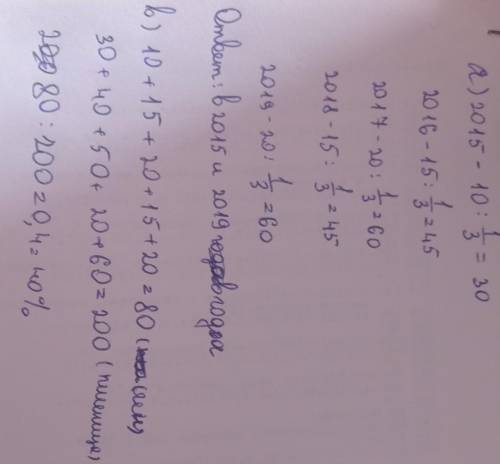 а) 2015 - 10 : 1/3 = 30
2016 - 15 : 1/3 = 45
2017 - 20 : 1/3 = 60
2018 - 15 : 1/3 = 45
2019 - 20 : 1/3 = 60
Ответ: в 2015 и 2019 годах
в) 10 + 15 + 20 + 15 + 20 = 80 (
30 + 40 + 50 + 20 + 60 = 200 (пшеница)
80 : 200 = 0,4 = 40%